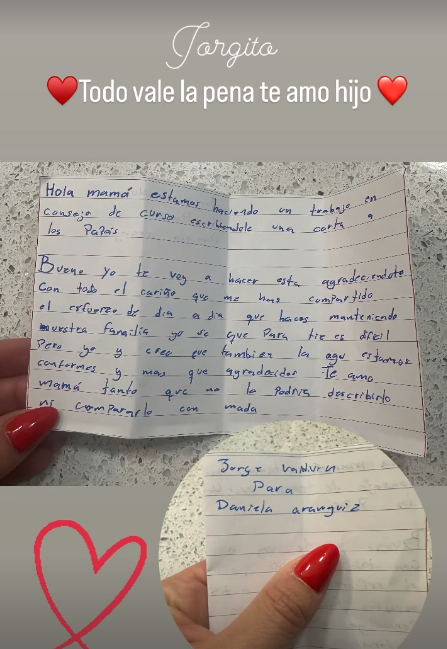 Jorgito
❤️Todo vale la pena te amo hijo ❤️
Hola mamá estamos haciendo un trabajo en
consejo de curso escribiendole una carta a
los Papás
Bueno yo te voy a hacer esta agradeciendote
con todo el cariño que me has compartido
el esfuerzo de dia a dia que haces manteniendo
nuestra familia yo se que Para tie es dificil
Pero yo y creo que tambien la agu estamos
conformes y mas que agradecidos Te amo
mamá tanto que no lo Podria describirlo
ni compararlo con nada
Jorge
Para
Daniela aranguiz